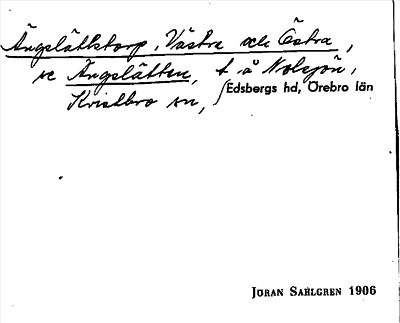 Ängslättstorp, Västra och Östra,
se Ängslätten, t. å Nolsjön,
Kvistbro sn, Edsbergs hd, Örebro län
JÖRAN SAHLGREN 1906